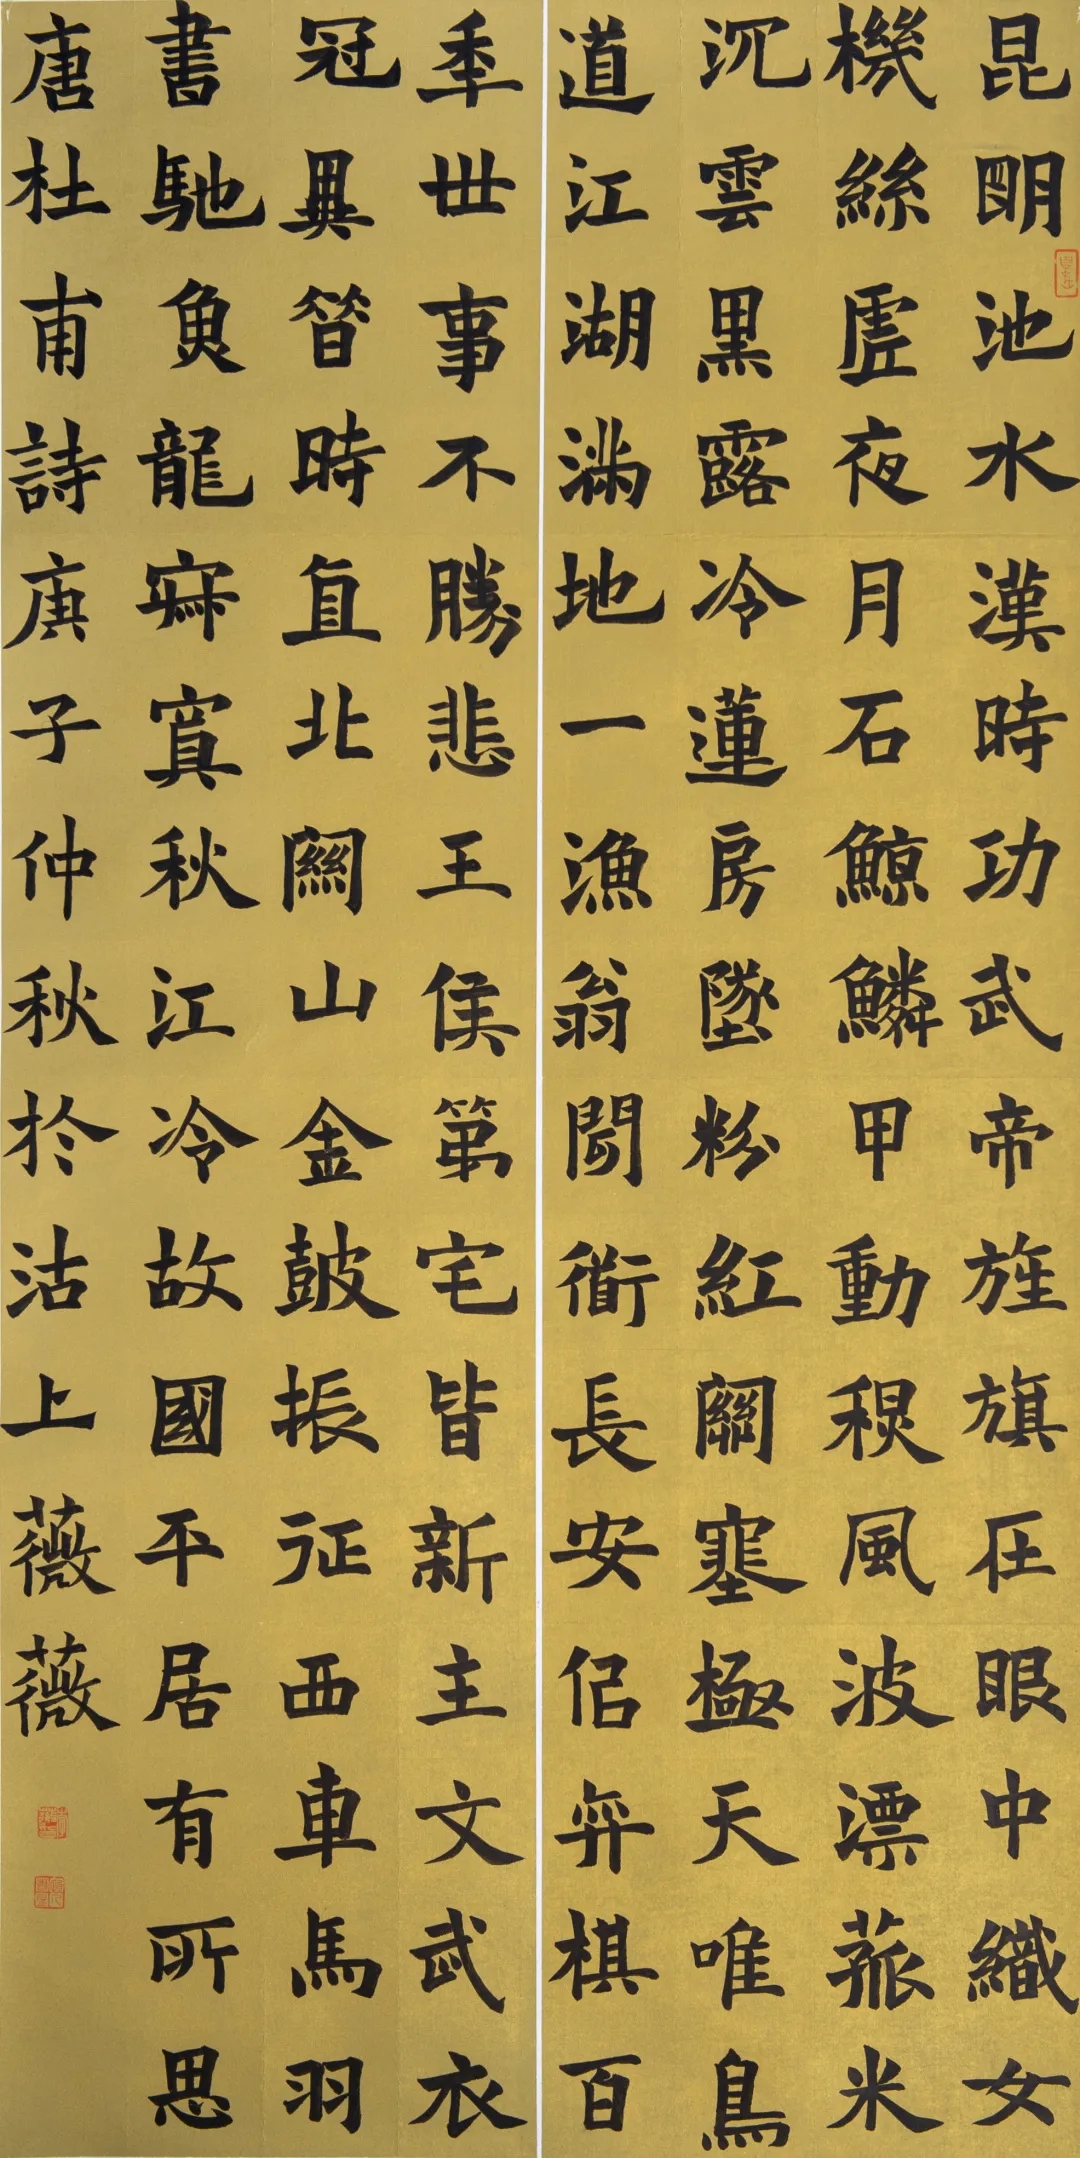 昆明池水漢時功武帝旌旗在眼中織女
機絲虛夜月石鯨鱗甲動秋風波漂菰米
沉雲黑露冷蓮房墜粉紅關塞極天唯鳥
道江湖滿地一漁翁聞衜長安佀弈棋百
年世事不勝悲王侯第宅皆新主文武衣
冠異昔時直北關山金鼓振征西車馬羽
書馳魚龍寂寞秋江冷故國平居有所思
唐杜甫詩庚子仲秋於沽上薇薇